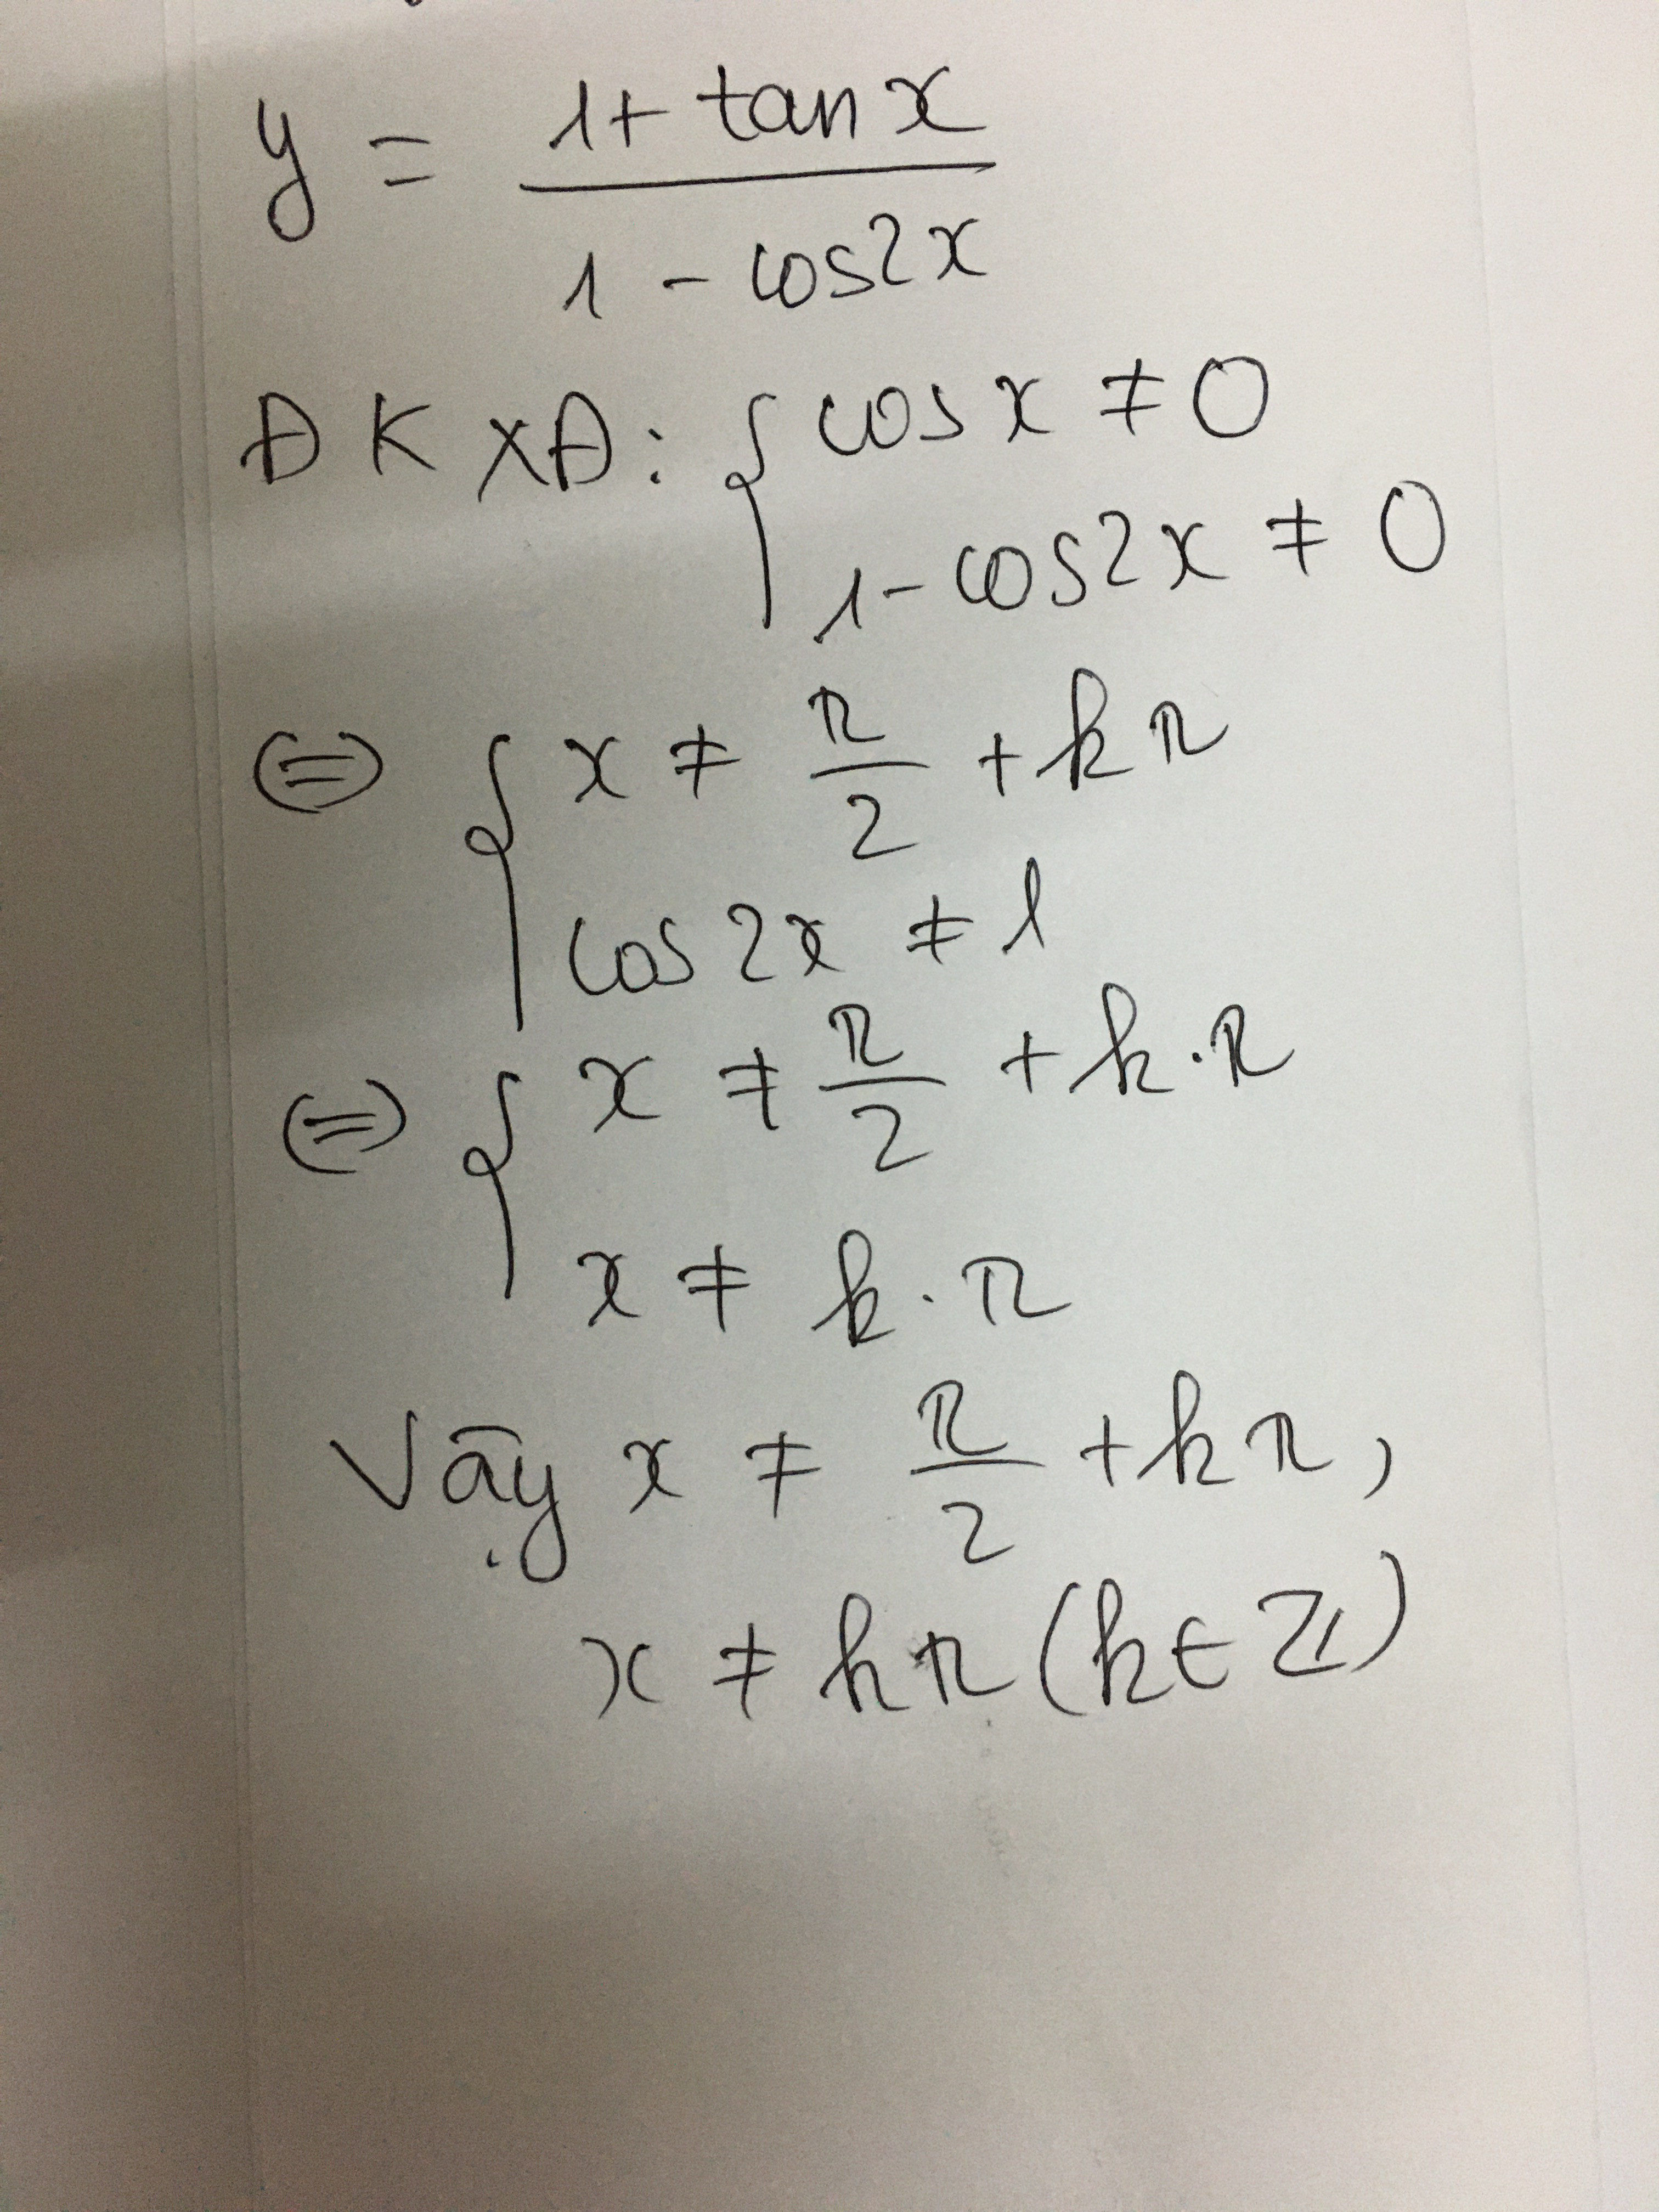 y = (1 + tan x) / (1 - cos2x)
ĐKXĐ: { cos x ≠ 0
1 - cos2x ≠ 0
(=) { x ≠ π/2 + kπ
cos 2x ≠ 1
(=) { x ≠ π/2 + k.π
x ≠ k.π
Vậy x ≠ π/2 + kπ,
x ≠ kπ (k ∈ Z)